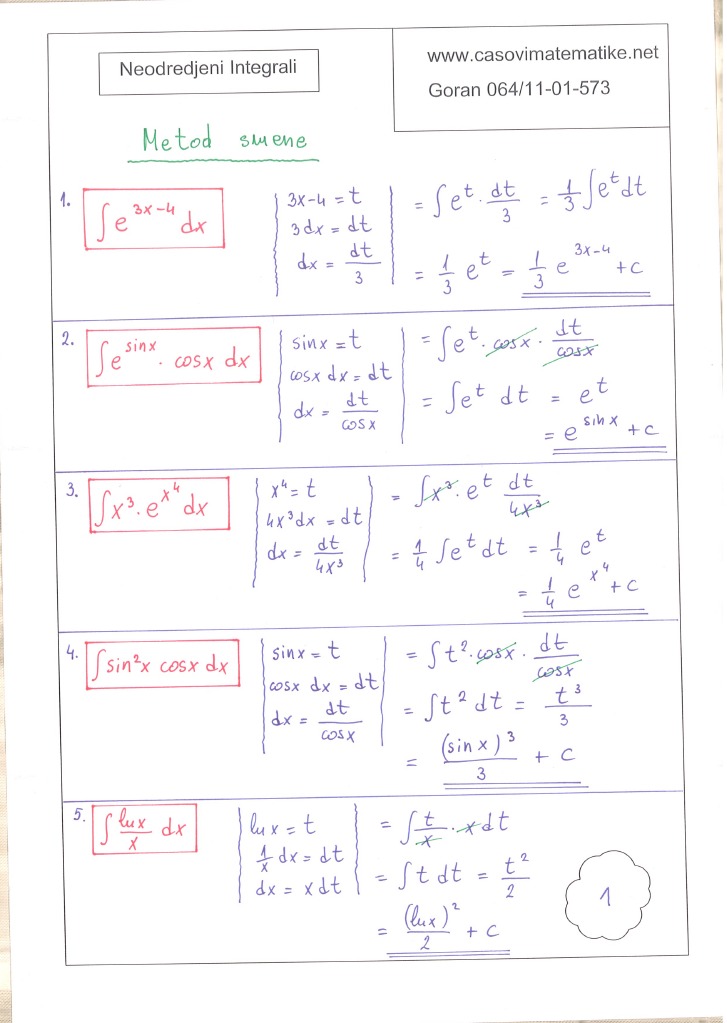 Neodredjeni Integrali
www.casovimatematike.net
Goran 064/11-01-573
Metod smene
1. ∫e^(3x-4) dx
3x-4 = t
3dx = dt
dx = dt/3
= ∫e^t · dt/3 = 1/3 ∫e^t dt
= 1/3 e^t = 1/3 e^(3x-4) + c
2. ∫e^(sinx) · cosx dx
sinx = t
cosx dx = dt
dx = dt/cosx
= ∫e^t · cosx · dt/cosx
= ∫e^t dt = e^t
= e^(sinx) + c
3. ∫x³ · e^(x⁴) dx
x⁴ = t
4x³dx = dt
dx = dt/4x³
= ∫x³ · e^t dt/4x³
= 1/4 ∫e^t dt = 1/4 e^t
= 1/4 e^(x⁴) + c
4. ∫sin²x cosx dx
sinx = t
cosx dx = dt
dx = dt/cosx
= ∫t² · cosx · dt/cosx
= ∫t² dt = t³/3
= (sinx)³/3 + c
5. ∫ lnx/x dx
lnx = t
1/x dx = dt
dx = x dt
= ∫ t/x · x dt
= ∫t dt = t²/2
= (lnx)²/2 + c
1